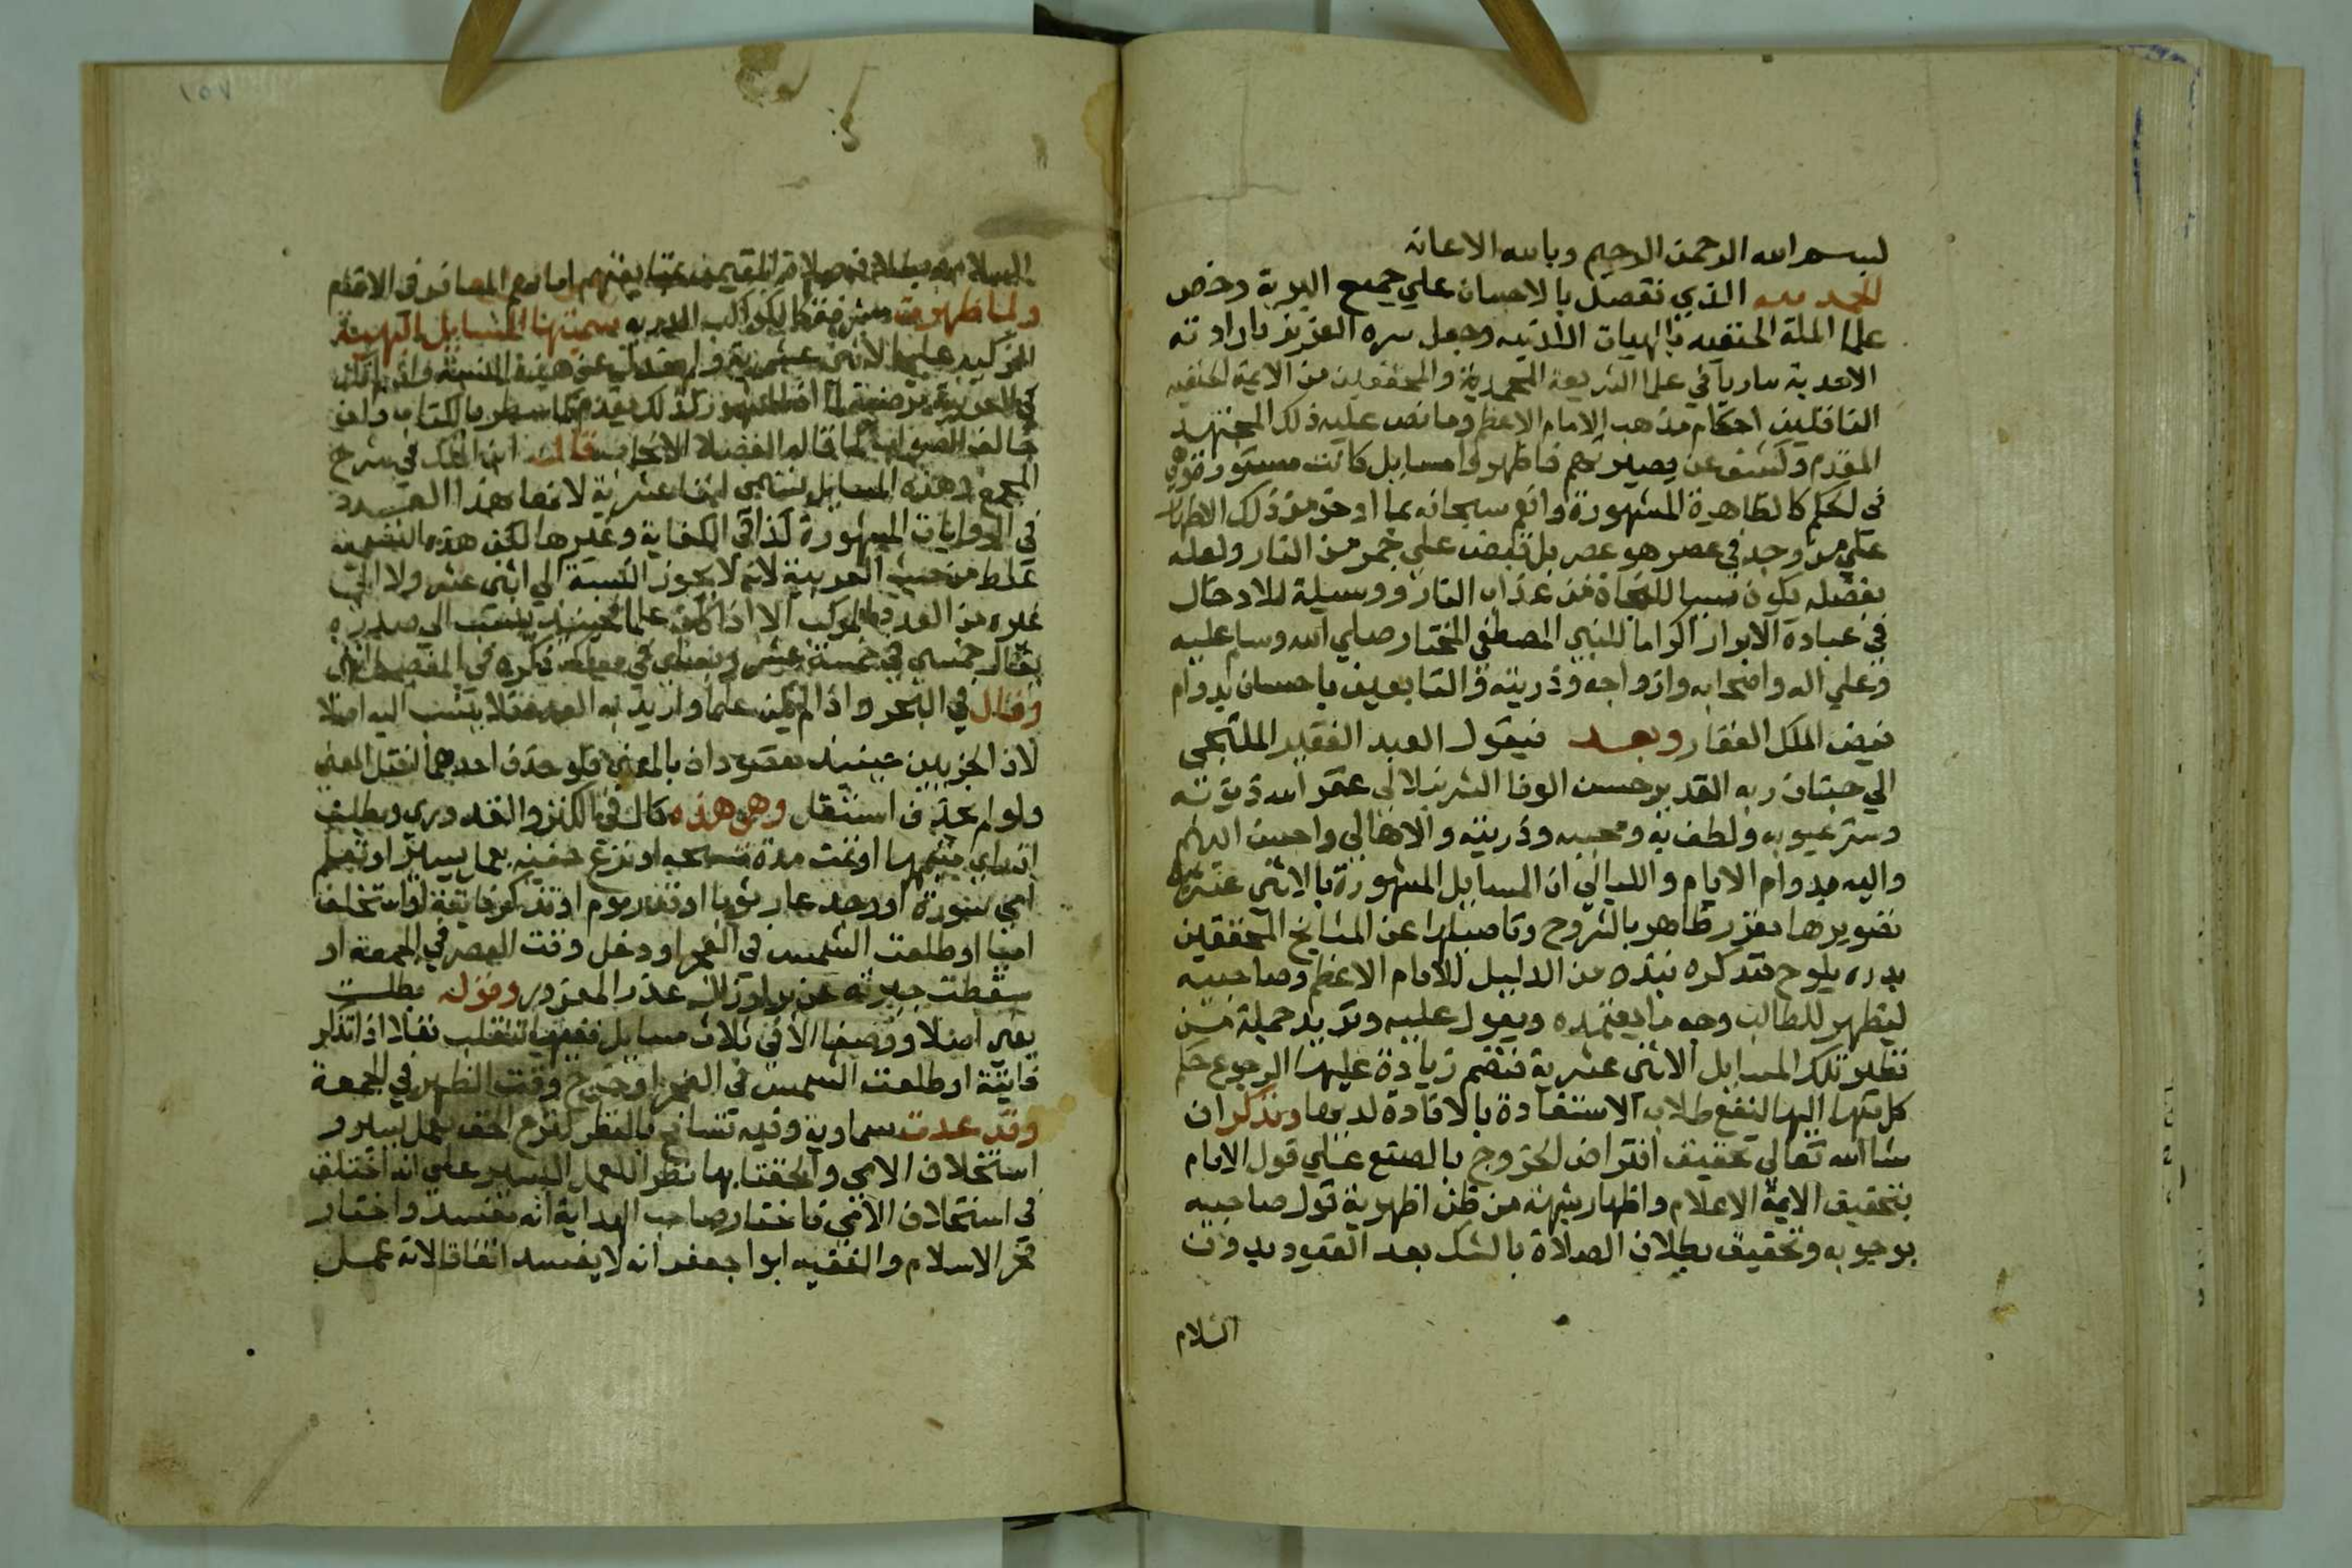 بسم الله الرحمن الرحيم وبالله الاعانه
الحمد لله الذي تفضل بالاحسان علي جميع البرية وخص
علما الملة الحنفيه بالهبات اللدنيه وجعل سره العزيز بارادته
الاحدية ساريا في علما الشريعة المحمدية والمحققين من الايمة الحنفيه
الناقلين احكام مذهب الامام الاعظم وما نص عليه ذلك المجتهد
المقدم وكشف عن بصيرتهم فاظهروا مسايل كانت مستورة وهي
في الحكم كالظاهرة المشهورة وانعم سبحانه بما اوحق من ذلك الاظهار
علي من وجد في عصر هو عصر بل قبض علي جمر من النار ولعله
بفضله يكون سببا للنجاة من عذاب النار ووسيلة للادخال
في عبادة الابرار اكراما للنبي المصطفي المختار صلي الله وسلم عليه
وعلي اله واصحابه وازواجه وذريته والتابعين باحسان بدوام
فيض الملك الغفار وبعد فيقول العبد الفقير الملتجي
الي جنان ربه القدير حسن الوفا الشرنبلالي غفر الله ذنوبه
وستر عيوبه ولطف به ومحبيه وذريته والاهالي واحسن اليهم
واليه بدوام الايام والليالي ان المسايل المشهورة بالاثني عشرية
تصويرها مقرر ظاهر بالشروح وتاصيلها عن المشايخ المحققين
بدره يلوح فنذكره نبذه من الدليل للامام الاعظم وصاحبيه
ليظهر للطالب وجه ما يعتمده ويعول عليه ونزيد جملة من
نظير تلك المسايل الاثني عشرية فنضم زيادة عليها الرجوع حكم
كل منها اليها لنفع طلاب الاستفادة بالافادة لديها ونذكر ان
شا الله تعالي تحقيق افتراض الخروج بالصنع علي قول الامام
بتحقيق الايمة الاعلام واظهار شبهة من ظن اظهرية قول صاحبيه
بوجوبه وتحقيق بطلان الصلاة بالشك بعد القعود بدون
السلام
السلام وبطلان صلاة المقيمين بقيامهم امامهم المسافر في الاقتدا
ولما ظهرت مشرقة كالكواكب الدرية سميتها المسايل البهية
الزكيه علي الاثني عشرية
قال ابن الملك في شرح
المجمع وهذه المسايل تسمي اثنا عشرية لانها هذا العدد
في الروايات المشهورة كذا في الكفاية وغيرها لكن هذه التسمية
غلط من حيث العربية لانه لا يجوز النسبة الي اثني عشر ولا الي
غيره من العدد المركب الا اذا كان علما فحينيذ ينسب الي صدره
يقال خمسي في خمسة عشر
وقال في البحر واذا لم يكن علما واريد به العدد فلا ينسب اليه اصلا
لان الجزيين حينيذ مقصودان بالمعني فلو حذف احدهما اختل المعني
ولو لم يحذف استثقل وهي هذه كذا في الكنز والقدوري وبطلت
ان راي متيمم ما اوتمت مدة مسحه او نزع خفيه بعمل يسير او تعلم
امي سورة او وجد عار ثوبا او قدر موم او تذكر فايتة او استخلف
اميا او طلعت الشمس في الفجر او دخل وقت العصر في الجمعة او
سقطت جبيرته عن برء او زال عذر المعذور وقوله بطلت
يعني اصلا ووصفا الا في ثلاث مسايل فانها تنقلب نفلا اذا تذكر
فايتة او طلعت الشمس في الفجر او خرج وقت الظهر في الجمعة
وقد عدت سماوية وفيه تسامح بالنظر لنزع الخف بعمل يسير و
استخلاف الامي والحقتا بها نظرا للعمل اليسير علي انه اختلف
في استخلاف الامي فاختار صاحب الهداية انه تفسد واختار
فخر الاسلام والفقيه ابوا جعفر انه لا يفسد اتفاقا لانه عمل
١٥٧